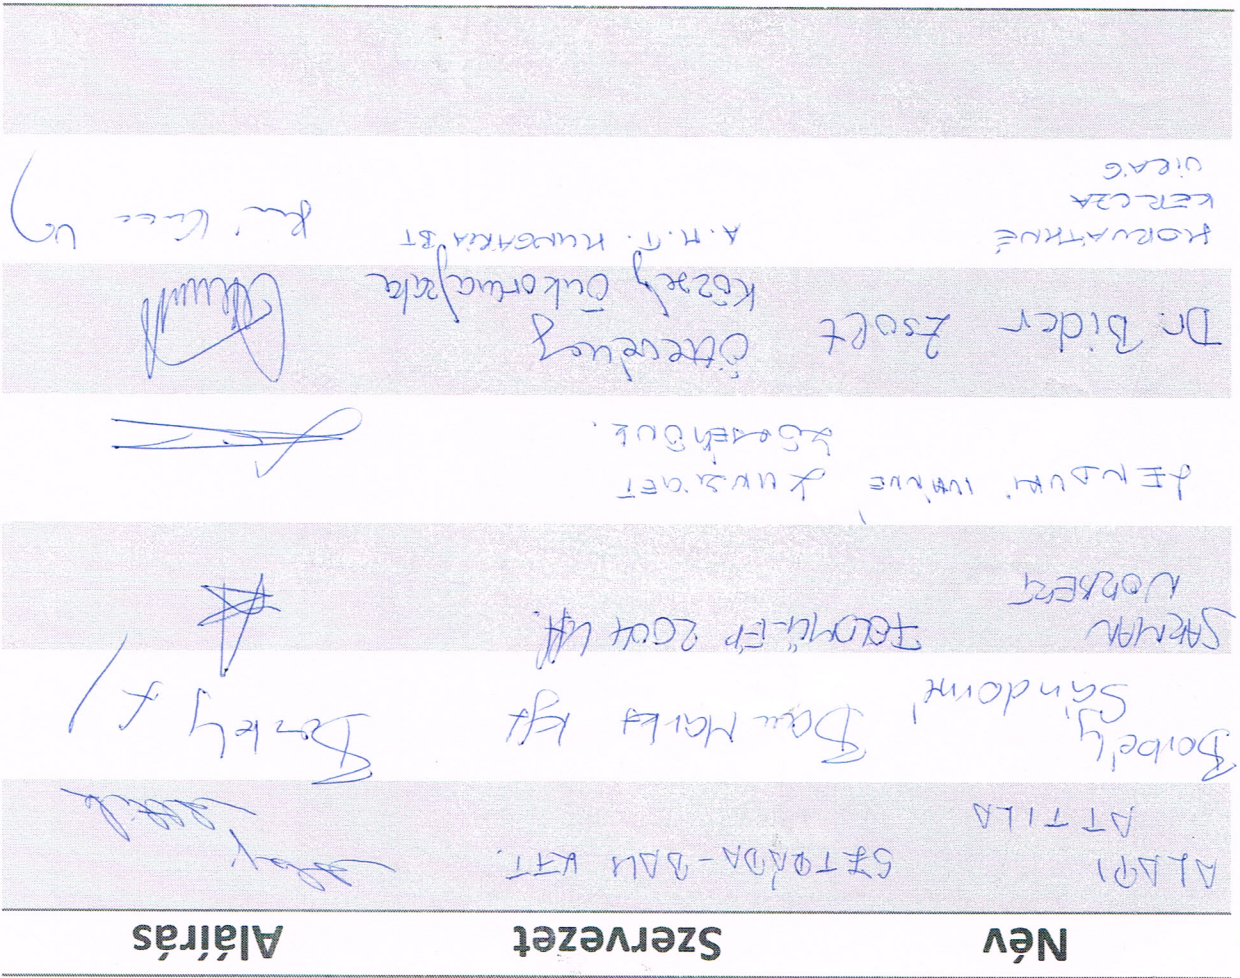 Név Szervezet Aláírás
ALAPI
ATTILA
SZTRÁDA-BAU KFT.
Borbély
Sándorné
Bau Market Kft
Borbély
SARMAN
NORBERT
FELDMÜ-ÉP 2004 Kft.
LENDVAI IVÁNNÉ
KUNSZIGET
KÖZSÉG ÖNK.
Dr. Bider Zsolt
Öttevény
Község Önkormányzata
HORVÁTHNÉ
KERCZA
VIRÁG
A.M.T. HUNGÁRIA BT